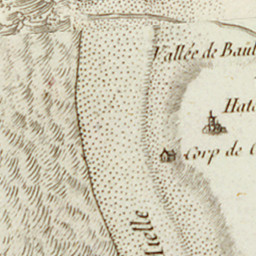 Vallée de Baul
Hat
Corp de G
uelle